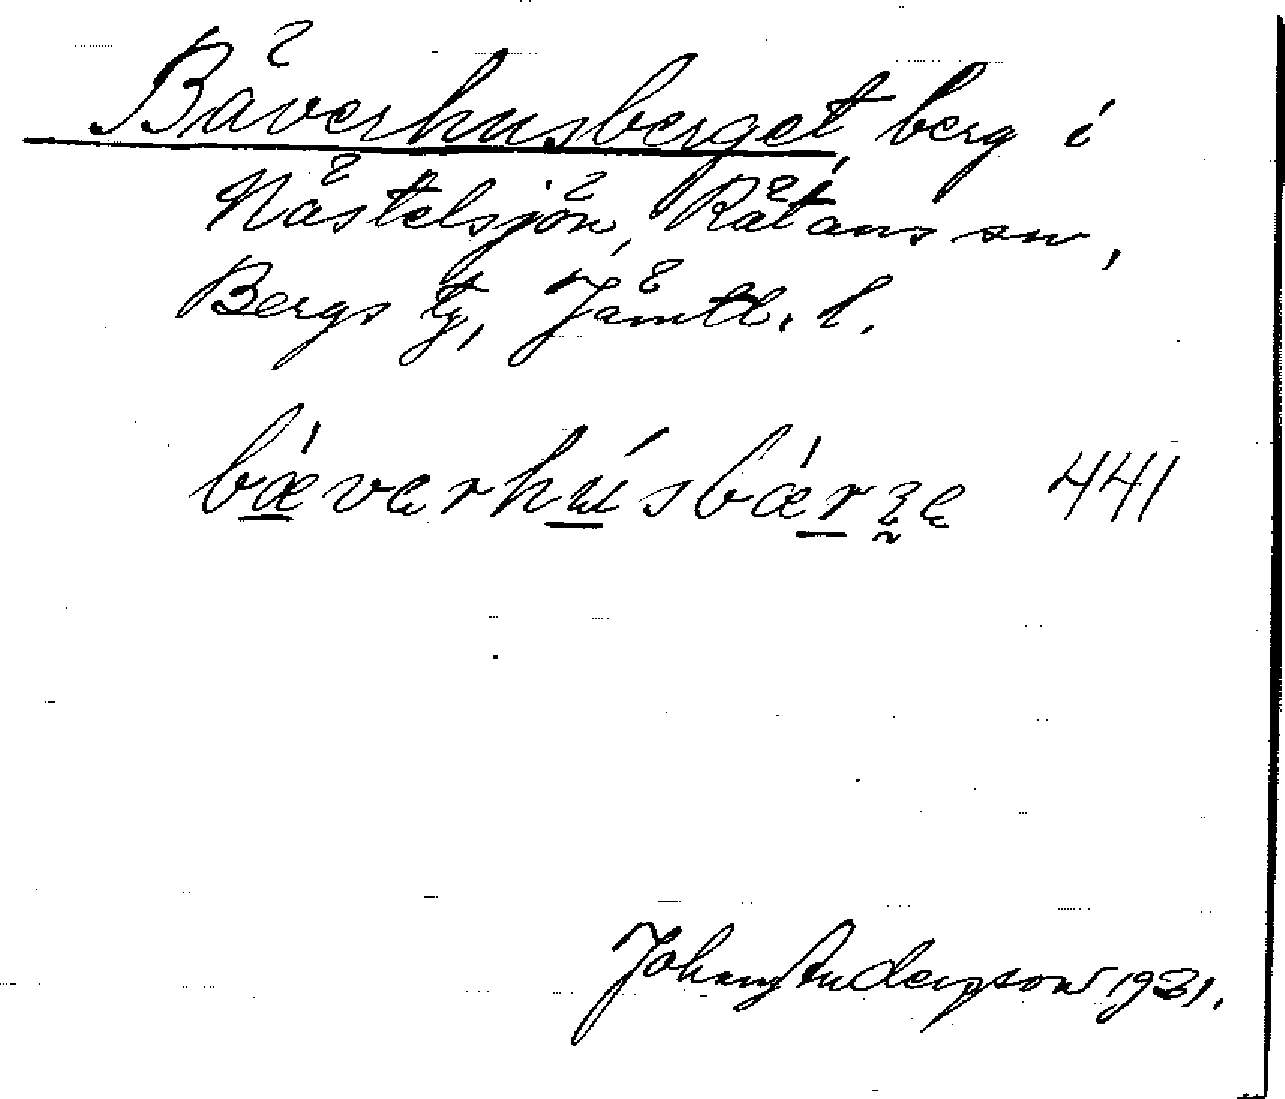 Bäverhusberget, berg i
Nästelsjön, Rätans sn,
Bergs tg, Jämtl. l.
bǽvɐrhúsbǽrʒɐ 441
Johnny Andersson 1921.